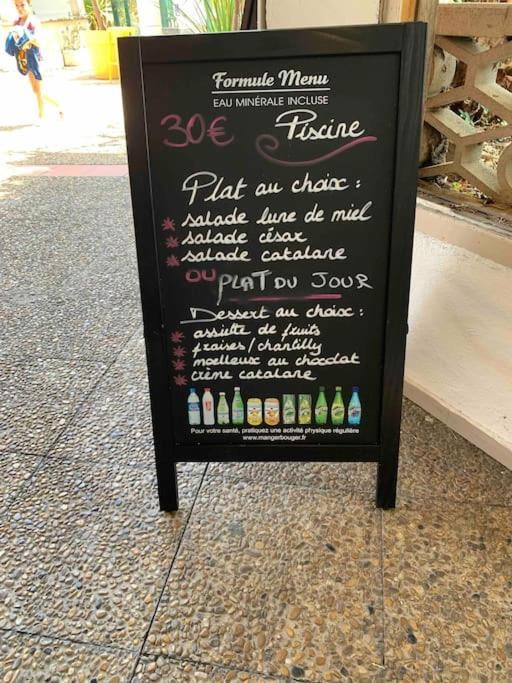 Formule Menu
EAU MINÉRALE INCLUSE
30€ Piscine
Plat au choix :
* salade lune de miel
* salade césar
* salade catalane
OU PLAT DU JOUR
Dessert au choix :
* assiette de fruits
* fraises/chantilly
* moelleux au chocolat
* crème catalane
Pour votre santé, pratiquez une activité physique régulière
www.mangerbouger.fr